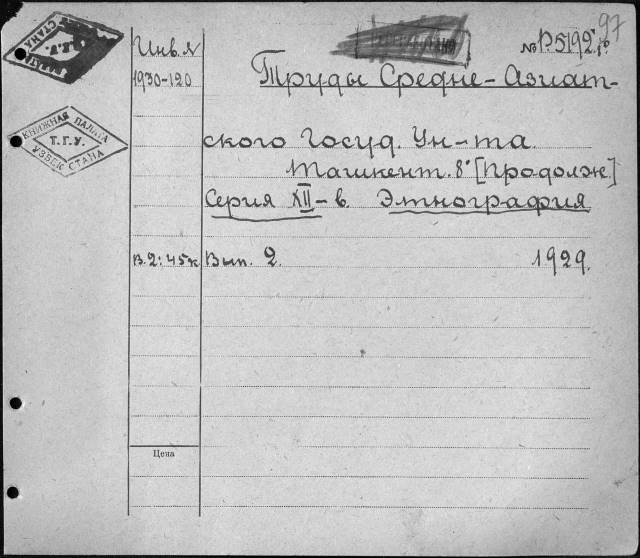 97
№ Р.5192.1°
Инв. №
1930-120
Труды Средне-Азиат-
ского Госуд. Ун-та.
Ташкент. 8° [Продолж.]
Серия XII-в. Этнография
В.2: 45к Вып. 2. 1929.
Цена
ПАЛАТА
СТАНА
КНИЖНАЯ ПАЛАТА
Т.Г.У.
УЗБЕКСТАНА